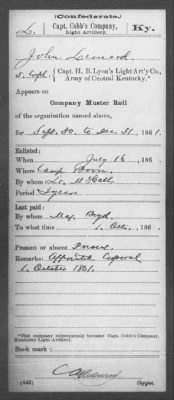 (Confederate.)
L. Capt. Cobb's Company, Ky.
Light Artillery.
John Leonard
Capt. H. B. Lyon's Light Art'y Co.,
Army of Central Kentucky.*
Appears on
Company Muster Roll
of the organization named above,
for Sept. 30, to Dec. 31, 1861.
Enlisted:
When July 16, 186 .
Where Camp Boone
By whom Lt.
Period
Last paid:
By whom Maj. Boyd
To what time 1. Octo., 186 .
Present or absent Present
Remarks: Appointed Corporal
1. October 1861.
*This company subsequently became Capt. Cobb's Company,
Kentucky Light Artillery.
Book mark:
(642)
Copyist.